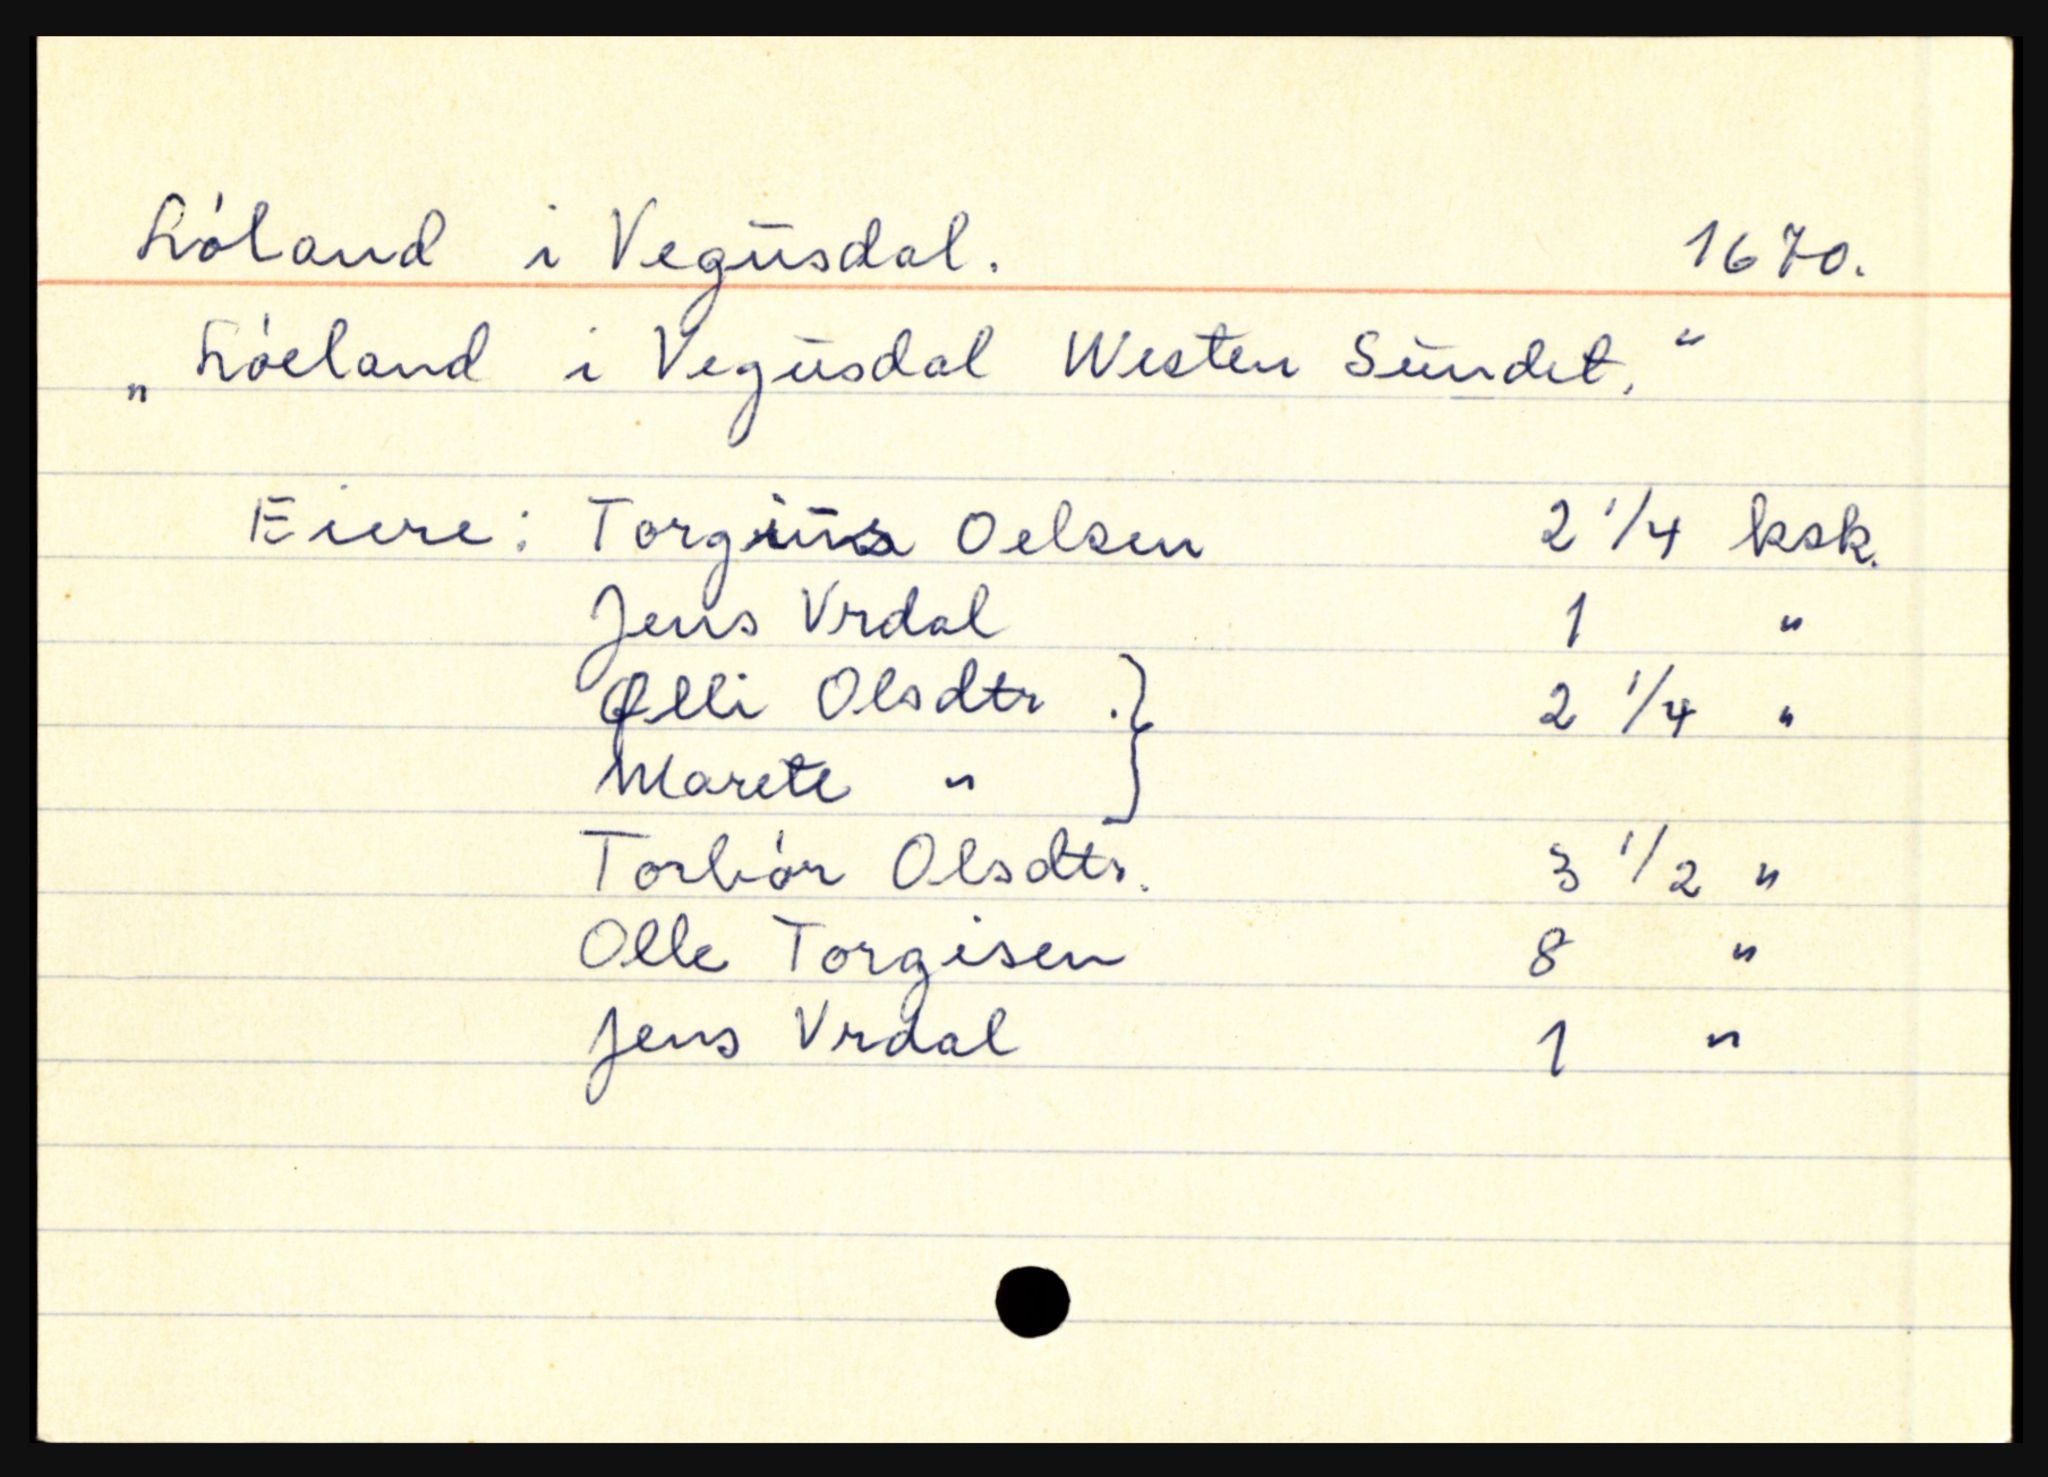 Lóland i Vegüsdal. 1670.
„Lóeland i Vegüsdal Westen Sündet.“
Eiere: Torgiüs Oelsen 2 1/4 ksk.
Jens Vrdal 1 "
Ølli Olsdtr. 2 1/4 "
Marete "
Torbór Olsdtr. 3 1/2 "
Olle Torgisen 8 "
Jens Vrdal 1 "